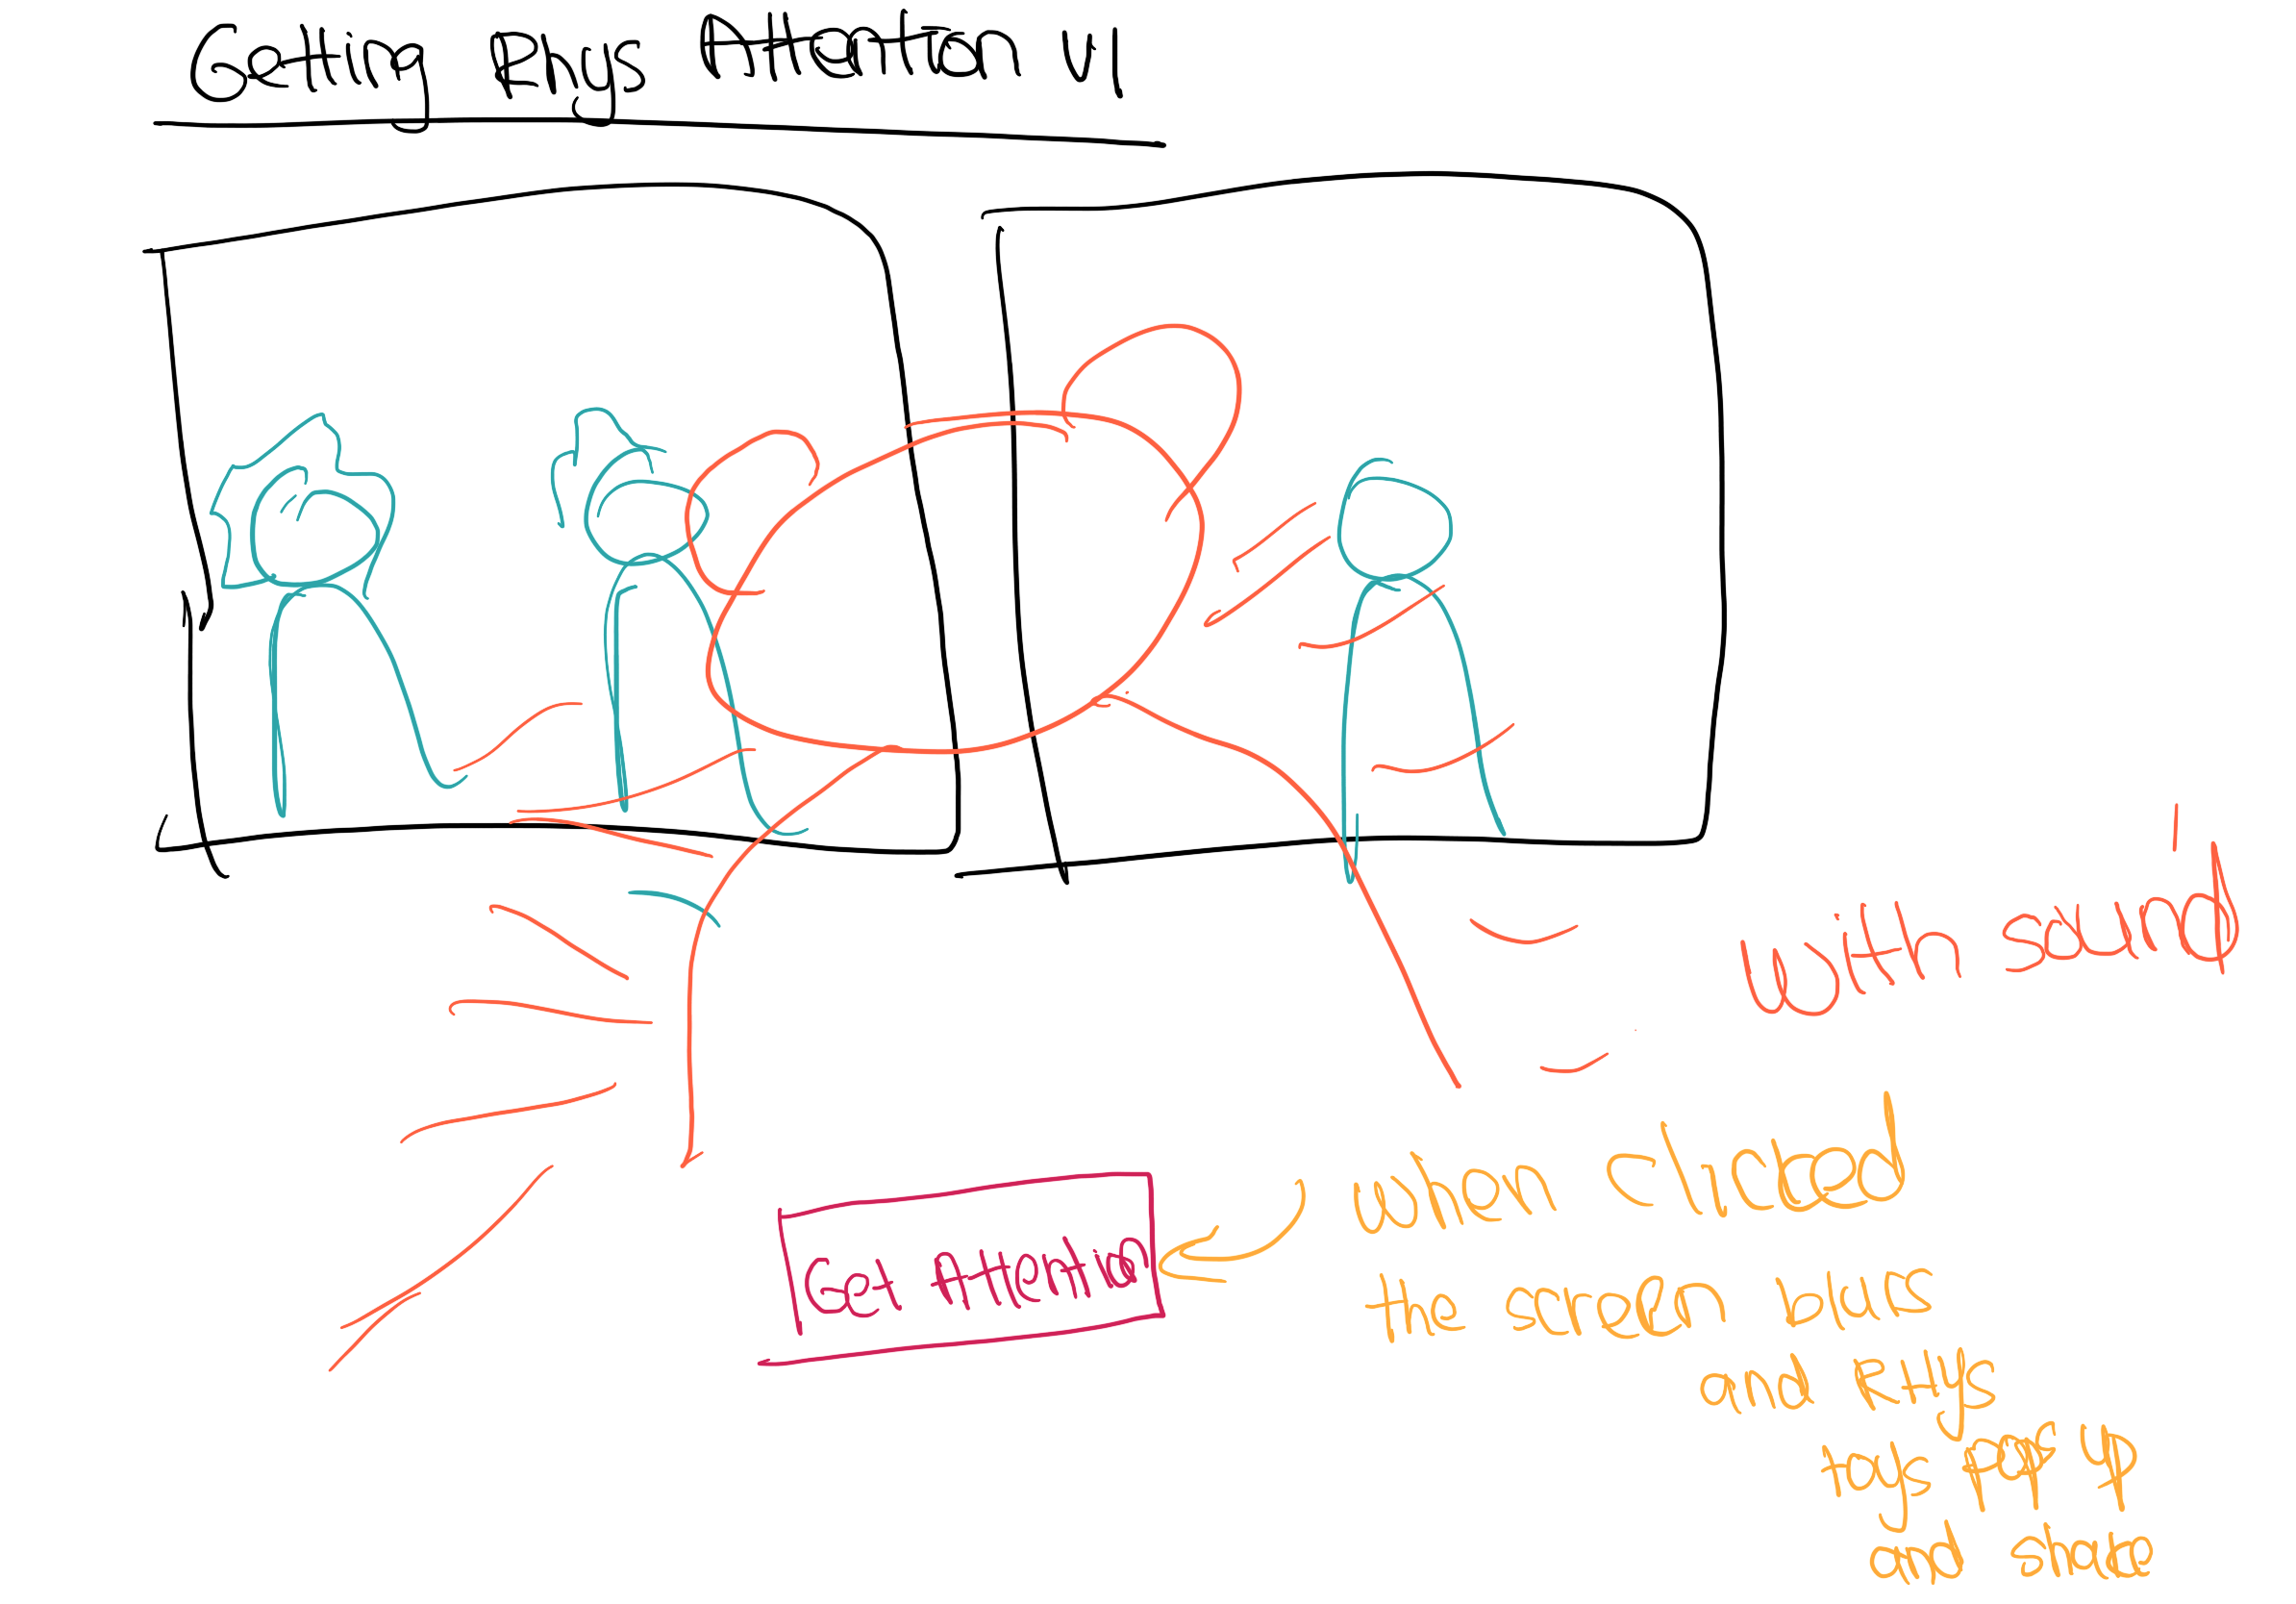 Getting Rhys Attention V1
with sound
Get Attention
when clicked
the screen blurs
and RHYS
toys pop up
and shake